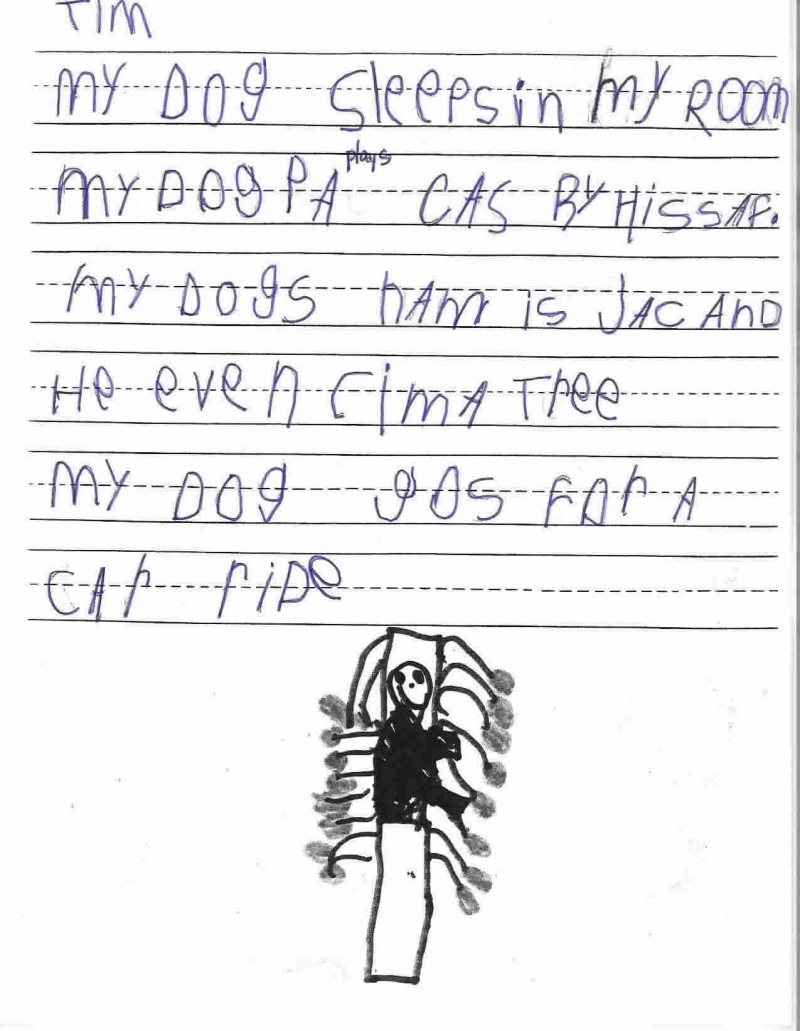 TIM
MY DOG SleePs in MY ROOM
plays
MY DOg PA CAS BY HiSSAF.
MY DOgS nAM iS JAC AND
He even CimA Tree
MY DOg gOS FOr A
CAr riDe